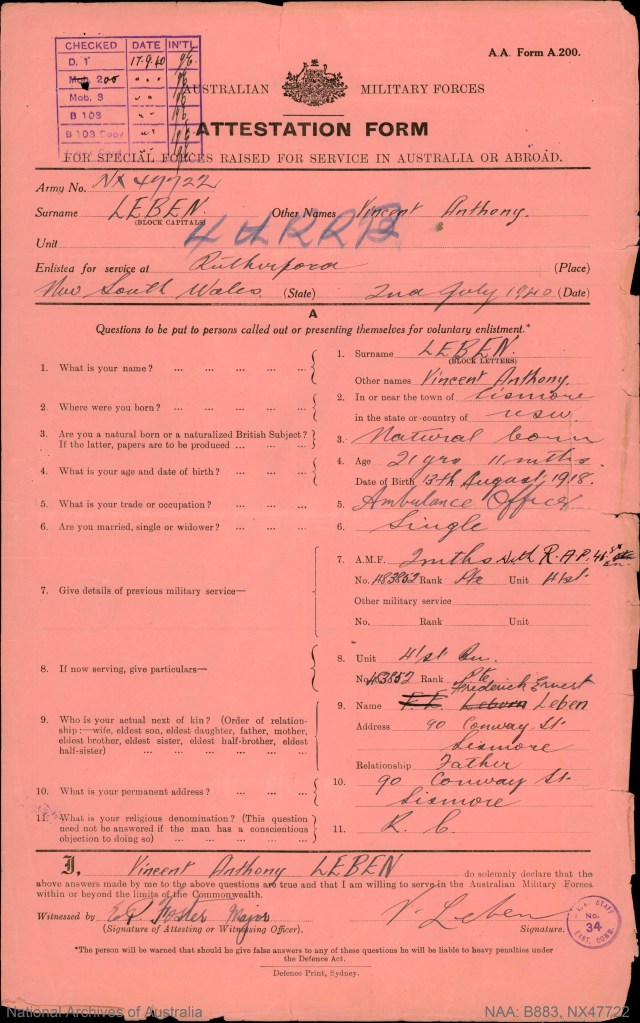 A.A. Form A.200.
CHECKED DATE IN'TL
D. 1 17.9.40
Mob. 3
B 103
B 103 Copy
AUSTRALIAN MILITARY FORCES
ATTESTATION FORM
FOR SPECIAL FORCES RAISED FOR SERVICE IN AUSTRALIA OR ABROAD.
Army No. NX 47722
Surname LEBEN. Other Names Vincent Anthony.
(BLOCK CAPITALS)
Unit
Enlisted for service at Rutherford (Place)
New South Wales (State) 2nd July 1940 (Date)
A
Questions to be put to persons called out or presenting themselves for voluntary enlistment.*
1. What is your name? ... ... ... ... ...
1. Surname LEBEN.
(BLOCK LETTERS)
Other names Vincent Anthony.
2. Where were you born? ... ... ... ...
2. In or near the town of Lismore
in the state or country of NSW.
3. Are you a natural born or a naturalized British Subject?
If the latter, papers are to be produced ... ... ...
3. Natural born
4. What is your age and date of birth? ... ... ...
4. Age 21 yrs 11 mths.
Date of Birth 13th August, 1918.
5. What is your trade or occupation? ... ... ...
5. Ambulance Officer
6. Are you married, single or widower? ... ... ...
6. Single
7. Give details of previous military service—
7. A.M.F. 2mths with R.A.P. 41st Bn.
No. 483852 Rank Pte Unit 41st
Other military service
No. Rank Unit
8. If now serving, give particulars—
8. Unit 41st Bn.
No. 483852 Rank Pte
9. Who is your actual next of kin? (Order of relation-
ship:—wife, eldest son, eldest daughter, father, mother,
eldest brother, eldest sister, eldest half-brother, eldest
half-sister) ... ... ... ... ...
Frederick Ernest
9. Name F. E. Leborn Leben
Address 90 Conway St
Lismore
Relationship Father
10. What is your permanent address? ... ... ...
10. 90 Conway St
Lismore
11. What is your religious denomination? (This question
need not be answered if the man has a conscientious
objection to doing so) ... ... ... ...
11. R. C.
I, Vincent Anthony LEBEN do solemnly declare that the
above answers made by me to the above questions are true and that I am willing to serve in the Australian Military Forces
within or beyond the limits of the Commonwealth.
Witnessed by Major V. Leben
(Signature of Attesting or Witnessing Officer). Signature.
STAFF
No.
34
EAST. COMM.
*The person will be warned that should he give false answers to any of these questions he will be liable to heavy penalties under
the Defence Act.
Defence Print, Sydney.
National Archives of Australia NAA: B883, NX47722